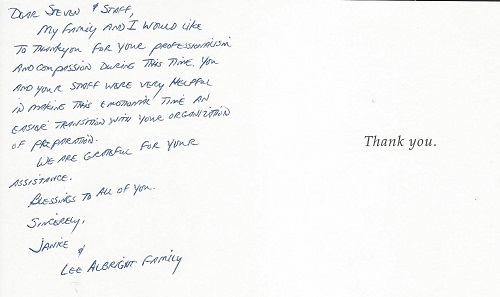 DEAR STEVEN & STAFF,
MY FAMILY AND I WOULD LIKE
TO THANKYOU FOR YOUR PROFESSIONALISM
AND COMPASSION DURING THIS TIME. YOU
AND YOUR STAFF WERE VERY HELPFUL
IN MAKING THIS EMOTIONAL TIME AN
EASIER TRANSITION WITH YOUR ORGANIZATION
OF PREPARATION.
WE ARE GRATEFUL FOR YOUR
ASSISTANCE.
BLESSINGS TO ALL OF YOU.
SINCERELY,
JANICE &
LEE ALBRIGHT FAMILY
Thank you.